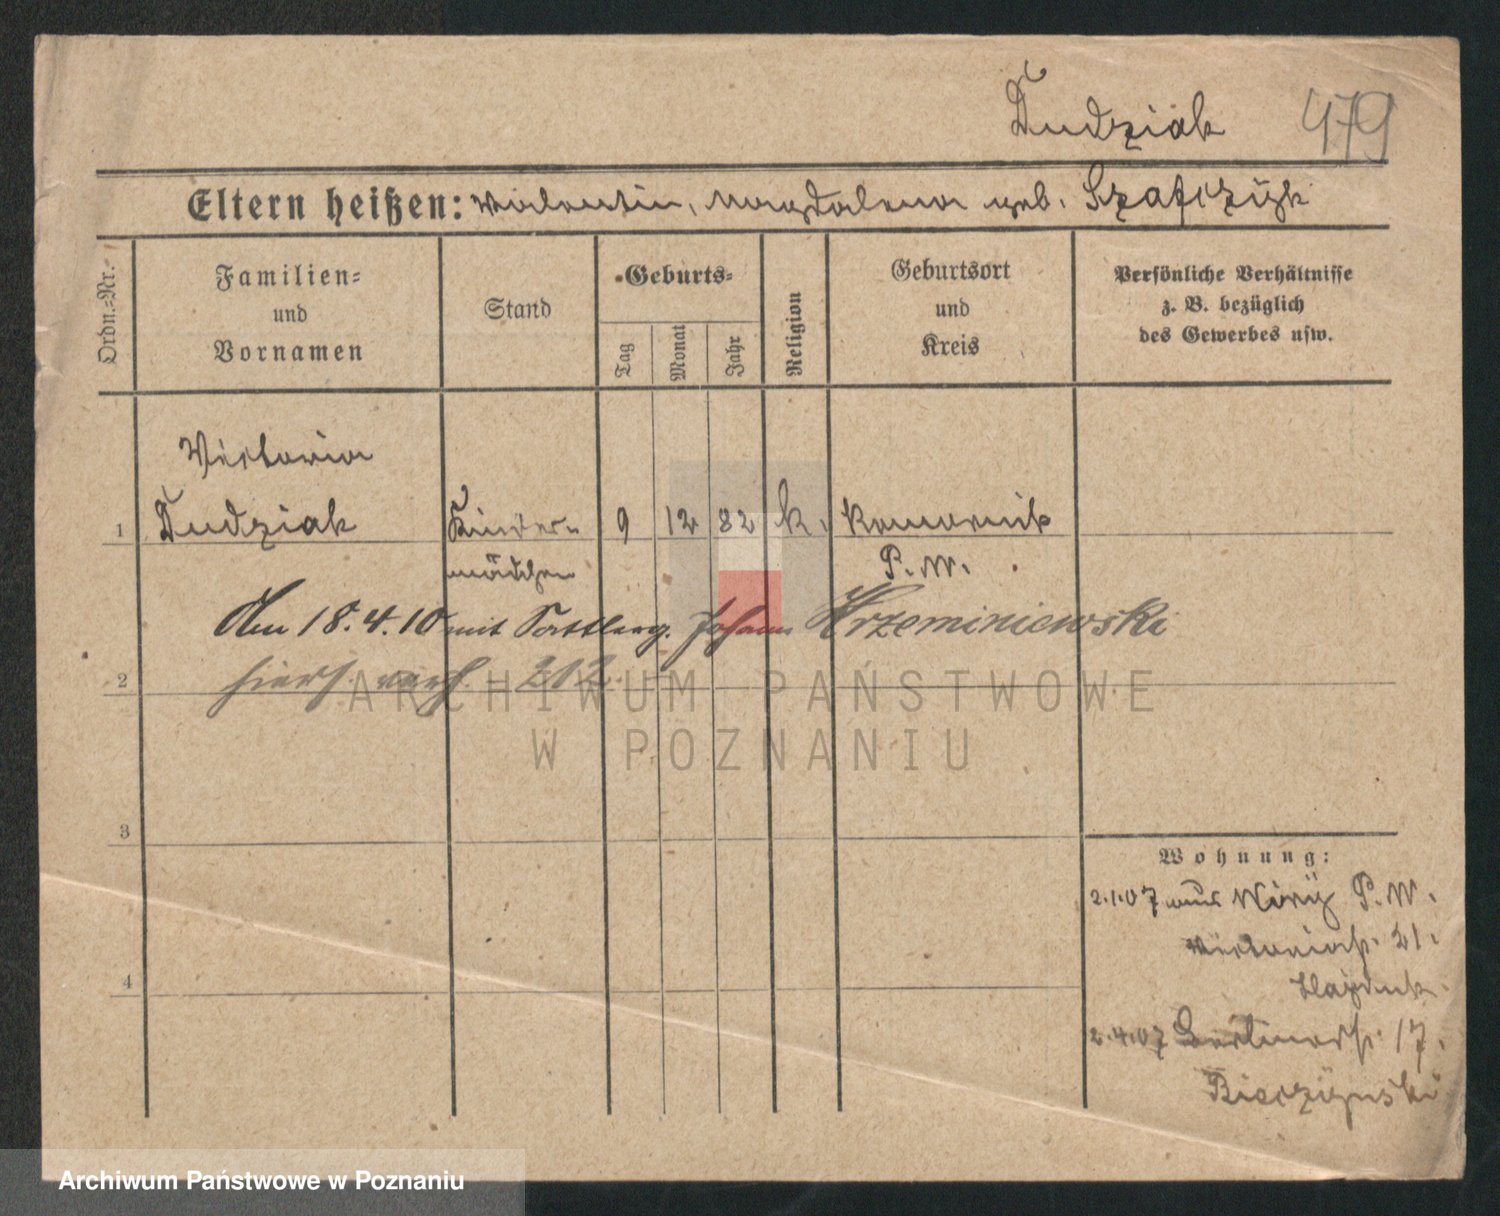 Dudziak 479
Eltern heißen: Valentin, Magdalena geb. Szafczyk
Ordn.-Nr.
Familien-
und
Vornamen
Stand
Geburts-
Tag
Monat
Jahr
Religion
Geburtsort
und
Kreis
Persönliche Verhältnisse
z. B. bezüglich
des Gewerbes usw.
Victoria
1 Dudziak Kinder- 9 12 82 k. Komornik
mädchen P. W.
Am 18.4.10 mit Sattlerg. Johann Krzeminiewski
2 hiers. verh. 212.
3
4
Wohnung:
2.1.07 aus P. W.
Victoriastr. 21.
Hayduk.
2.4.07 Berlinerstr. 17.
ARCHIWUM PAŃSTWOWE
W POZNANIU
Archiwum Państwowe w Poznaniu